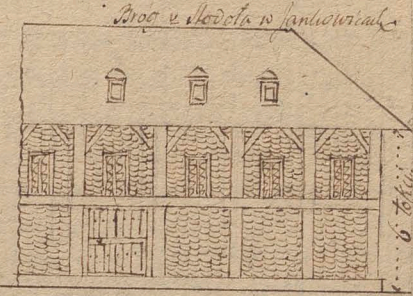 Bróg v Stodoła w Jankowicach
6 łokci